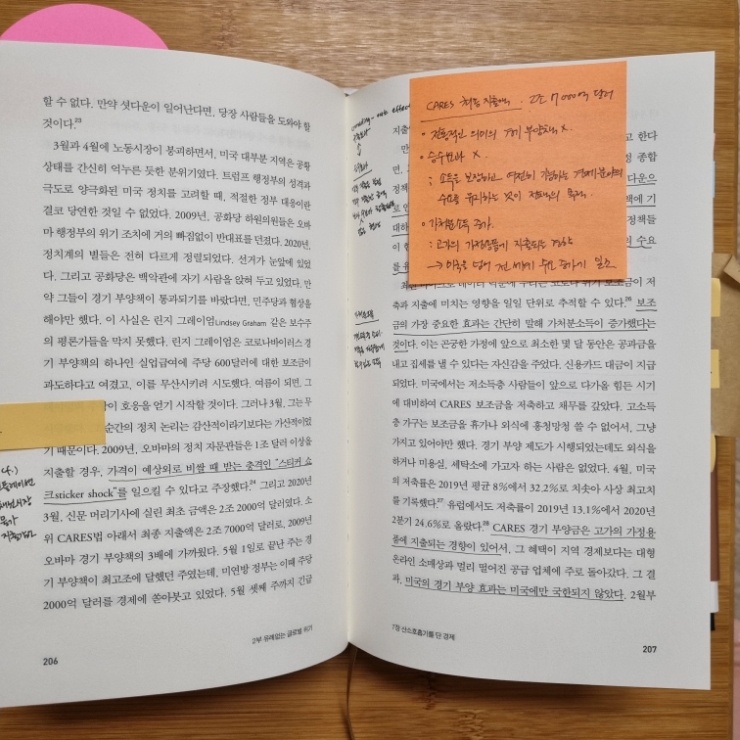 할 수 없다. 만약 셧다운이 일어난다면, 당장 사람들을 도와야 할
것이다.²³
3월과 4월에 노동시장이 붕괴하면서, 미국 대부분 지역은 공황
상태를 간신히 억누르는 듯한 분위기였다. 트럼프 행정부의 성격과
극도로 양극화된 미국 정치를 고려할 때, 적절한 정부 대응이란
결코 당연한 것일 수 없었다. 2009년, 공화당 하원의원들은 오바
마 행정부의 위기 조치에 거의 빠짐없이 반대표를 던졌다. 2020년,
정치계의 별들은 전혀 다르게 정렬되었다. 선거가 눈앞에 있었
다. 그리고 공화당은 백악관에 자기 사람을 앉혀 두고 있었다. 만
약 그들이 경기 부양책이 통과되기를 바랐다면, 민주당과 협상을
해야만 했다. 이 사실은 린지 그레이엄Lindsey Graham 같은 보수주
의 평론가들을 막지 못했다. 린지 그레이엄은 코로나바이러스 경
기 부양책의 하나인 실업급여에 주당 600달러에 대한 보조금이
과도하다고 여겼고, 이를 무산시키려 시도했다. 여름이 되면, 그
이 호응을 얻기 시작할 것이다. 그러나 3월, 그는 무
순간의 정치 논리는 감산적이라기보다는 가산적이었
기 때문이다. 2009년, 오바마의 정치 자문관들은 1조 달러 이상을
지출할 경우, 가격이 예상외로 비쌀 때 받는 충격인 "스티커 쇼
크sticker shock"를 일으킬 수 있다고 주장했다.²⁴ 그리고 2020년
3월, 신문 머리기사에 실린 최초 금액은 2조 2000억 달러였다. 소
위 CARES법 아래서 최종 지출액은 2조 7000억 달러로, 2009년
오바마 경기 부양책의 3배에 가까웠다. 5월 1일로 끝난 주는 경
기 부양책이 최고조에 달했던 주였는데, 미연방 정부는 이때 주당
2000억 달러를 경제에 쏟아붓고 있었다. 5월 셋째 주까지 긴급
2부 유례없는 글로벌 위기
206
CARES 최종 지출액. 2조 7000억 달러
전통적인 의미의 경기 부양책 X.
승수효과 X.
: 소득을 보장하여 여전히 기능하는 경제 분야의
수요를 유지하는 것이 정책의 목적.
가처분소득 증가.
: 고가의 가정용품에 지출되는 경향
→ 미국을 넘어 전 세계 수요 증가에 일조
축과 지출에 미치는 영향을 일일 단위로 추적할 수 있다. 보조
금의 가장 중요한 효과는 간단히 말해 가처분소득이 증가했다는
것이다. 이는 곤궁한 가정에 앞으로 최소한 몇 달 동안은 공과금을
내고 집세를 낼 수 있다는 자신감을 주었다. 신용카드 대금이 지급
되었다. 미국에서는 저소득층 사람들이 앞으로 다가올 힘든 시기
에 대비하여 CARES 보조금을 저축하고 채무를 갚았다. 고소득
층 가구는 보조금을 휴가나 외식에 흥청망청 쓸 수 없어서, 그냥
가지고 있어야만 했다. 경기 부양 제도가 시행되었는데도 외식을
하거나 미용실, 세탁소에 가고자 하는 사람은 없었다. 4월, 미국
의 저축률은 2019년 평균 8%에서 32.2%로 치솟아 사상 최고치
를 기록했다.²⁷ 유럽에서도 저축률이 2019년 13.1%에서 2020년
2분기 24.6%로 올랐다.²⁸ CARES 경기 부양금은 고가의 가정용
품에 지출되는 경향이 있어서, 그 혜택이 지역 경제보다는 대형
온라인 소매상과 멀리 떨어진 공급 업체에 주로 돌아갔다. 그 결
과, 미국의 경기 부양 효과는 미국에만 국한되지 않았다. 2월부
7장 산소호흡기를 단 경제
207